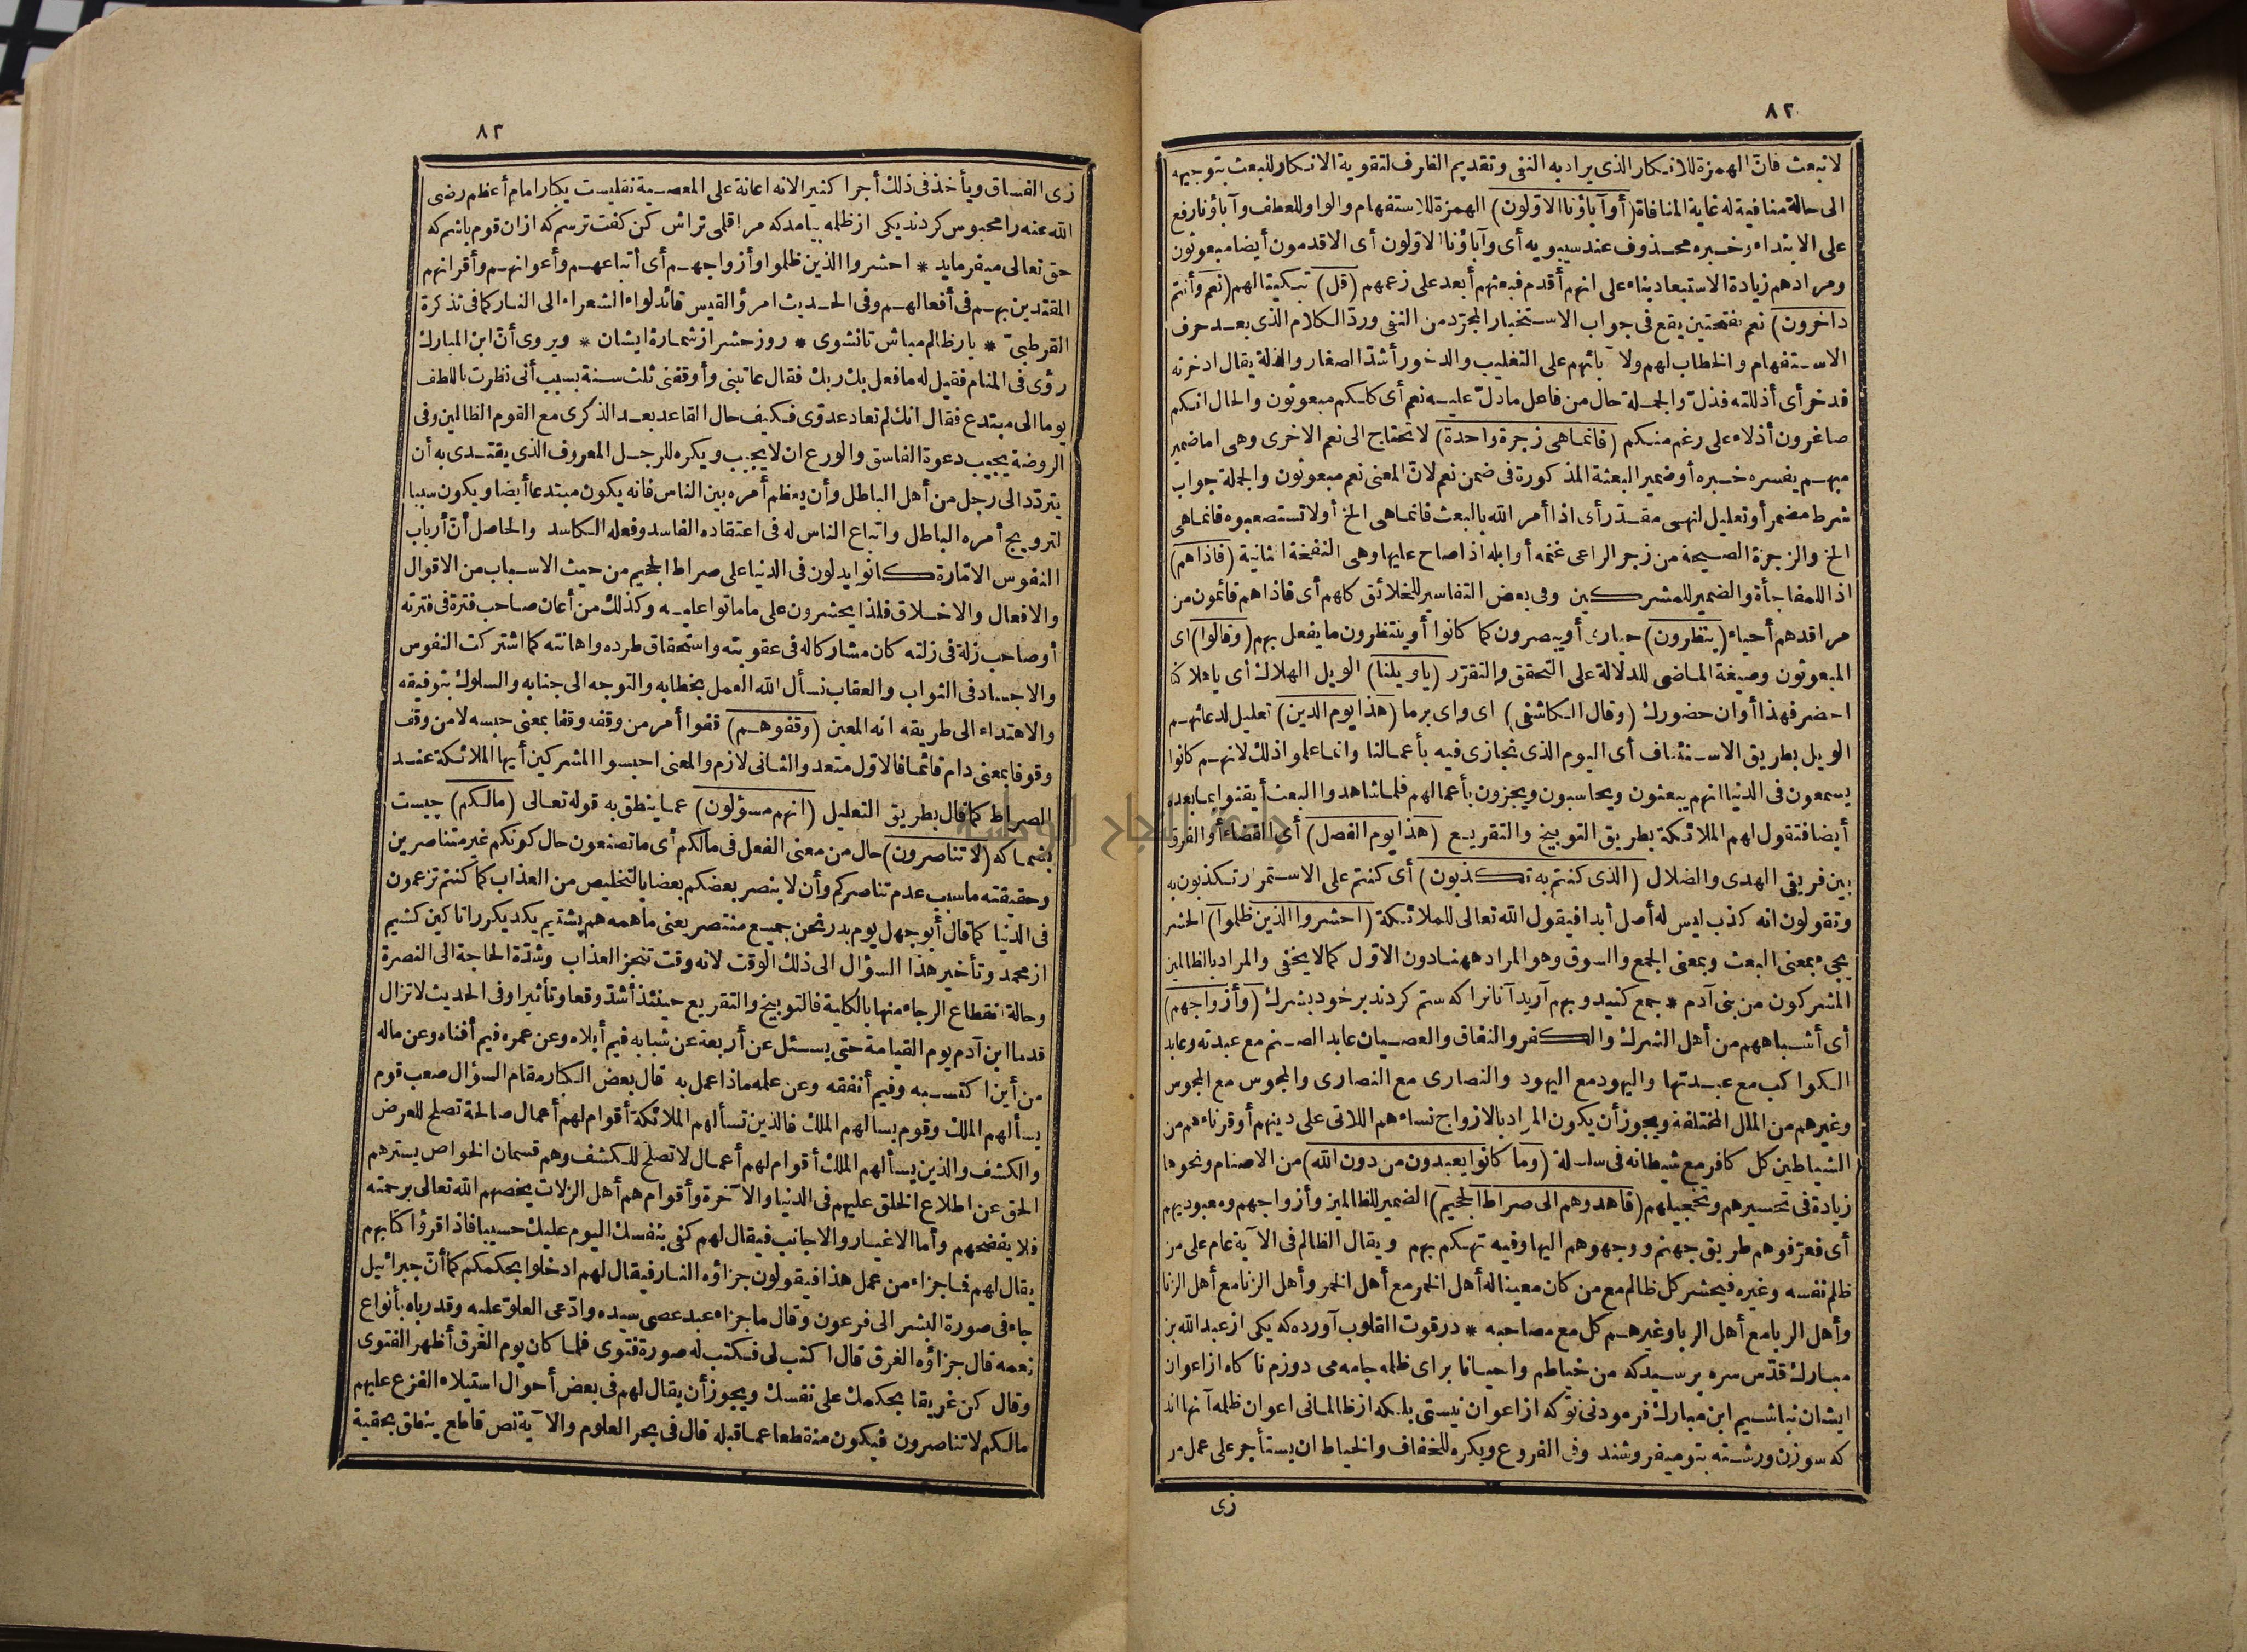 ٨٢
لا نبعث فان الهمزة للانكار الذى يراد به النفى وتقديم الظرف لتقوية الانكار للبعث بتوجيهه
الى حالة منافية له غاية المنافاة (أوآباؤنا الاولون) الهمزة للاستفهام والواو للعطف وآباؤنا رفع
على الابتداء وخبره محذوف عند سيبويه أى وآباؤنا الاولون أى الاقدمون أيضا مبعوثون
ومرادهم زيادة الاستبعاد بناء على انهم أقدم فبعثهم أبعد على زعمهم (قل) تبكيتا لهم (نعم وأنتم
داخرون) نعم بفتحتين يقع فى جواب الاستخبار المجرّد من النفى وردّ الكلام الذى بعد حرف
الاستفهام والخطاب لهم ولآبائهم على التغليب والدخور أشدّ الصغار والذلة يقال ادخرته
فدخر أى أذللته فذلّ والجملة حال من فاعل ما دلّ عليه نعم أى كلكم مبعوثون والحال انكم
صاغرون أذلاء على رغم منكم (فانما هى زجرة واحدة) لا تحتاج الى نعم الاخرى وهى اما ضمير
مبهم يفسره خبره أو ضمير البعثة المذكورة فى ضمن نعم لانّ المعنى نعم مبعوثون والجملة جواب
شرط مضمر أو تعليل لنهى مقدّر أى اذا أمر الله بالبعث فانما هى الخ أو لا تستصعبوه فانما هى
الخ والزجرة الصيحة من زجر الراعى غنمه أو ابله اذا صاح عليها وهى النفخة الثانية (فاذاهم)
اذا للمفاجأة والضمير للمشركين وفى بعض التفاسير للخلائق كلهم أى فاذاهم قائمون من
مراقدهم أحياء (ينظرون) حيارى أو يبصرون كما كانوا أو ينتظرون ما يفعل بهم (وقالوا) اى
المبعوثون وصيغة الماضى للدلالة على التحقق والتقرّر (ياويلنا) الويل الهلاك أى ياهلاكنا
احضر فهذا أوان حضورك (وقال الكاشفى) اى واى برما (هذا يوم الدين) تعليل لدعائهم
الويل بطريق الاستئناف أى اليوم الذى نجازى فيه بأعمالنا وانما علموا ذلك لانهم كانوا
يسمعون فى الدنيا انهم يبعثون ويحاسبون ويجزون بأعمالهم فلما شاهدوا البعث أيقنوا بما بعده
أيضا فتقول لهم الملائكة بطريق التوبيخ والتقريع (هذا يوم الفصل) أى القضاء أو الفرق
بين فريقى الهدى والضلال (الذى كنتم به تكذبون) أى كنتم على الاستمرار تكذبون به
وتقولون انه كذب ليس له أصل أبدا فيقول الله تعالى للملائكة (احشروا الذين ظلموا) الحشر
يجىء بمعنى البعث وبمعنى الجمع والسوق وهو المراد ههنا دون الاوّل كما لا يخفى والمراد بالظالمين
المشركون من بنى آدم * جمع كنيد وبهم آريد آنانرا كه ستم كردند بر خود بشرك (وأزواجهم)
أى أشباههم من أهل الشرك والكفر والنفاق والعصيان عابد الصنم مع عبدته وعابد
الكواكب مع عبدتها واليهود مع اليهود والنصارى مع النصارى والمجوس مع المجوس
وغيرهم من الملل المختلفة ويجوز أن يكون المراد بالازواج نساءهم اللاتى على دينهم أو قرناءهم من
الشياطين كل كافر مع شيطانه فى سلسلة (وما كانوا يعبدون من دون الله) من الاصنام ونحوها
زيادة فى تحسيرهم وتخجيلهم (فاهدوهم الى صراط الجحيم) الضمير للظالمين وأزواجهم ومعبوديهم
أى فعرّفوهم طريق جهنم ووجهوهم اليها وفيه تهكم بهم ويقال الظالم فى الآية عام على من
ظلم نفسه وغيره فيحشر كل ظالم مع من كان معينا له أهل الخمر مع أهل الخمر وأهل الزنا مع أهل الزنا
وأهل الربا مع أهل الربا وغيرهم كل مع مصاحبه * درقوت القلوب آورده كه يكى از عبد الله بن
مبارك قدّس سره پرسيد كه من خياطم واحيانا براى ظلمه جامه مى دوزم ناكاه از اعوان
ايشان نباشيم ابن مبارك فرمود نى تو كه از اعوان نيستى بلكه از ظالمانى اعوان ظلمه آنها اند
كه سوزن ورشته بتو ميفروشند وفى الفروع ويكره للخفاف والخياط ان يستأجر على عمل من
زى
٨٢
زى الفساق ويأخذ فى ذلك أجرا كثيرا لانه اعانة على المعصية نقليست يكبار امام أعظم رضى
الله عنه را محبوس كردند يكى از ظلمه بيامد كه مرا قلمى تراش كن كفت ترسم كه ازان قوم باشم كه
حق تعالى ميفرمايد * احشروا الذين ظلموا وأزواجهم أى أتباعهم وأعوانهم وأقرانهم
المقتدين بهم فى أفعالهم وفى الحديث امرؤ القيس قائد لواء الشعراء الى النار كما فى تذكرة
القرطبىّ * يار ظالم مباش تا نشوى * روز حشر از شماره ايشان * ويروى أنّ ابن المبارك
رؤى فى المنام فقيل له ما فعل بك ربك فقال عاتبنى وأوقفنى ثلث سنة بسبب أنى نظرت باللطف
يوما الى مبتدع فقال انك لم تعاد عدوّى فكيف حال القاعد بعد الذكرى مع القوم الظالمين وفى
الروضة يجيب دعوة الفاسق والورع ان لا يجيب ويكره للرجل المعروف الذى يقتدى به أن
يتردّد الى رجل من أهل الباطل وأن يعظم أمره بين الناس فانه يكون مبتدعا أيضا ويكون سببا
لترويج أمره الباطل واتباع الناس له فى اعتقاده الفاسد وفعله الكاسد والحاصل أنّ أرباب
النفوس الامّارة كانوا يدلون فى الدنيا على صراط الجحيم من حيث الاسباب من الاقوال
والافعال والاخلاق فلذا يحشرون على ما ماتوا عليه وكذلك من أعان صاحب فترة فى فترته
أو صاحب زلة فى زلته كان مشاركا له فى عقوبته واستحقاق طرده واهانته كما اشتركت النفوس
والاجساد فى الثواب والعقاب نسأل الله العمل بخطابه والتوجه الى جنابه والسلوك بتوفيقه
والاهتداء الى طريقه انه المعين (وقفوهم) قفوا أمر من وقفه وقفا بمعنى حبسه لا من وقف
وقوفا بمعنى دام قائما فالاوّل متعد والثانى لازم والمعنى احبسوا المشركين أيها الملائكة عند
الصراط كما قال بطريق التعليل (انهم مسؤلون) عما ينطق به قوله تعالى (مالكم) چيست
شما كه (لا تناصرون) حال من معنى الفعل فى مالكم أى ما تصنعون حال كونكم غير متناصرين
وحقيقته ما سبب عدم تناصركم وأن لا ينصر بعضكم بعضا بالتخليص من العذاب كما كنتم تزعمون
فى الدنيا كما قال أبو جهل يوم بدر نحن جميع منتصر يعنى ما همه هم پشتيم يكديكر را تا كين كشيم
از محمد وتأخير هذا السؤال الى ذلك الوقت لانه وقت تنجز العذاب وشدّة الحاجة الى النصرة
وحالة انقطاع الرجاء منها بالكلية فالتوبيخ والتقريع حينئذ أشدّ وقعا وتأثيرا وفى الحديث لا تزال
قدما ابن آدم يوم القيامة حتى يسئل عن أربعة عن شبابه فيم أبلاه وعن عمره فيم أفناه وعن ماله
من أين اكتسبه وفيم أنفقه وعن علمه ماذا عمل به قال بعض الكبار مقام السؤال صعب قوم
يسألهم الملك وقوم يسألهم الملك فالذين تسألهم الملائكة أقوام لهم أعمال صالحة تصلح للعرض
والكشف والذين يسألهم الملك أقوام لهم أعمال لا تصلح للكشف وهم قسمان الخواص يسترهم
الحق عن اطلاع الخلق عليهم فى الدنيا والآخرة وأقوام هم أهل الزلات يخصهم الله تعالى برحمته
فلا يفضحهم وأما الاغيار والاجانب فيقال لهم كفى بنفسك اليوم عليك حسيبا فاذا قرؤا كتابهم
يقال لهم فما جزاء من عمل هذا فيقولون جزاؤه النار فيقال لهم ادخلوا بحكمكم كما أنّ جبرائيل
جاء فى صورة البشر الى فرعون وقال ما جزاء عبد عصى سيده وادّعى العلوّ عليه وقد رباه بأنواع
نعمه قال جزاؤه الغرق قال اكتب لى فكتب له صورة فتوى فلما كان يوم الغرق أظهر الفتوى
وقال كن غريقا بحكمك على نفسك ويجوز أن يقال لهم فى بعض أحوال استيلاء الفزع عليهم
مالكم لا تناصرون فيكون منقطعا عما قبله قال فى بحر العلوم والآية نص قاطع ينطق بحقية